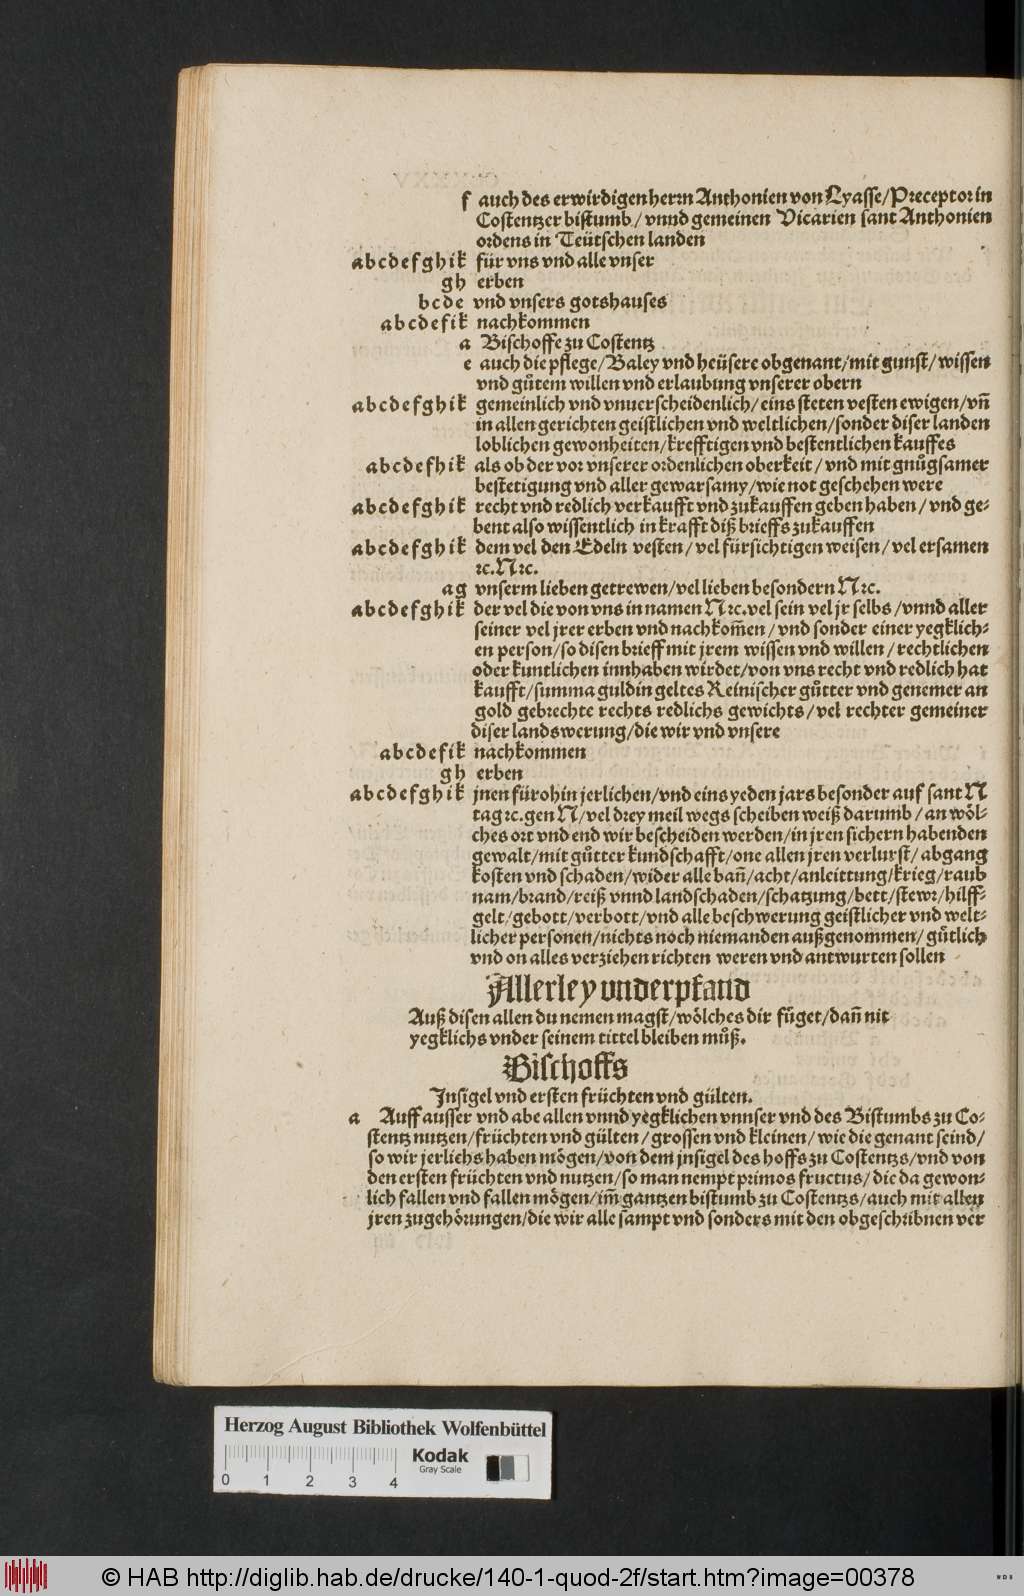 f auch des erwirdigen herrn Anthonien von Lyasse/Preceptor in
Costentzer bistumb/ vnnd gemeinen Vicarien sant Anthonien
ordens in Teütschen landen
a b c d e f g h i k für vns vnd alle vnser
g h erben
b c d e vnd vnsers gotshauses
a b c d e f i k nachkommen
a Bischoffe zu Costentz
e auch die pflege/Baley vnd heüsere obgenant/mit gunst/wissen
vnd gůtem willen vnd erlaubung vnserer obern
a b c d e f g h i k gemeinlich vnd vnuerscheidenlich/eins steten vesten ewigen/vn̄
in allen gerichten geistlichen vnd weltlichen/sonder diser landen
loblichen gewonheiten/krefftigen vnd bestentlichen kauffes
a b c d e f h i k als ob der vor vnserer ordenlichen oberkeit/ vnd mit gnůgsamer
bestetigung vnd aller gewarsamy/wie not geschehen were
a b c d e f g h i k recht vnd redlich verkaufft vnd zukauffen geben haben/ vnd ge⸗
bent also wissentlich in krafft diß brieffs zukauffen
a b c d e f g h i k dem vel den Edeln vesten/ vel fürsichtigen weisen/ vel ersamen
ꝛc. N ꝛc.
a g vnserm lieben getrewen/vel lieben besondern N ꝛc.
a b c d e f g h i k der vel die von vns in namen N ꝛc. vel sein vel jr selbs/vnnd aller
seiner vel jrer erben vnd nachkom̄en/ vnd sonder einer yegklich⸗
en person/so disen brieff mit jrem wissen vnd willen/ rechtlichen
oder kuntlichen innhaben wirdet/von vns recht vnd redlich hat
kaufft/summa guldin geltes Reinischer gůtter vnd genemer an
gold gebrechte rechts redlichs gewichts/ vel rechter gemeiner
diser landswerung/die wir vnd vnsere
a b c d e f i k nachkommen
g h erben
a b c d e f g h i k jnen fürohin jerlichen/vnd eins yeden jars besonder auf sant N
tag ꝛc. gen N/vel drey meil wegs scheiben weiß darumb/ an wöl⸗
ches ort vnd end wir bescheiden werden/in jren sichern habenden
gewalt/mit gůtter kundschafft/one allen jren verlurst/ abgang
kosten vnd schaden/wider alle ban̄/acht/anleittung/krieg/raub
nam/brand/reiß vnnd landschaden/schatzung/bett/stewr/hilff⸗
gelt/gebott/verbott/vnd alle beschwerung geistlicher vnd welt⸗
licher personen/nichts noch niemanden außgenommen/ gůtlich
vnd on alles verziehen richten weren vnd antwurten sollen
Allerley vnderpfand
Auß disen allen du nemen magst/wölches dir füget/dan̄ nit
yegklichs vnder seinem tittel bleiben můß.
Bischoffs
Insigel vnd ersten früchten vnd gülten.
a Auff ausser vnd abe allen vnnd yegklichen vnnser vnd des Bistumbs zu Co⸗
stentz nutzen/früchten vnd gülten/ grossen vnd kleinen/ wie die genant seind/
so wir jerlichs haben mögen/von dem jnsigel des hoffs zu Costentzs/vnd von
den ersten früchten vnd nutzen/so man nempt primos fructus/ die da gewon⸗
lich fallen vnd fallen mögen/im̄ gantzen bistumb zu Costentzs/auch mit allen
jren zugehörungen/die wir alle sampt vnd sonders mit den obgeschribnen ver
Herzog August Bibliothek Wolfenbüttel
Kodak
Gray Scale
0 1 2 3 4
© HAB http://diglib.hab.de/drucke/140-1-quod-2f/start.htm?image=00378